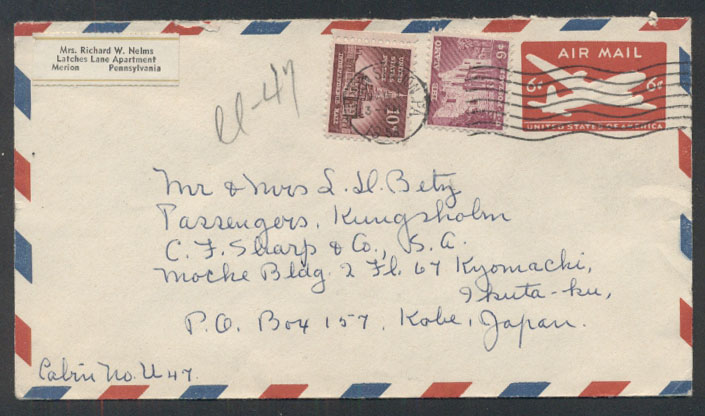 Mrs. Richard W. Nelms
Latches Lane Apartment
Merion Pennsylvania
U-47
INDEPENDENCE HALL
UNITED STATES POSTAGE
10¢
THE ALAMO
9¢
U.S. POSTAGE
PA
AIR MAIL
6¢ 6¢
UNITED STATES OF AMERICA
Mr & Mrs L. H. Betz
Passengers, Kungsholm
C. F. Sharp & Co., S. A.
Mocke Bldg. 2 Fl. 67 Kyomachi,
Ikuta-ku,
P.O. Box 157, Kobe, Japan.
Cabin No. U 47.